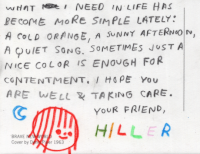 WHAT I NEED IN LIFE HAS
BECOME MORE SIMPLE LATELY:
A COLD ORANGE, A SUNNY AFTERNOON,
A QUIET SONG. SOMETIMES JUST A
NICE COLOR IS ENOUGH FOR
CONTENTMENT. I HOPE YOU
ARE WELL & TAKING CARE.
YOUR FRIEND,
HILLER
Cover by
1963